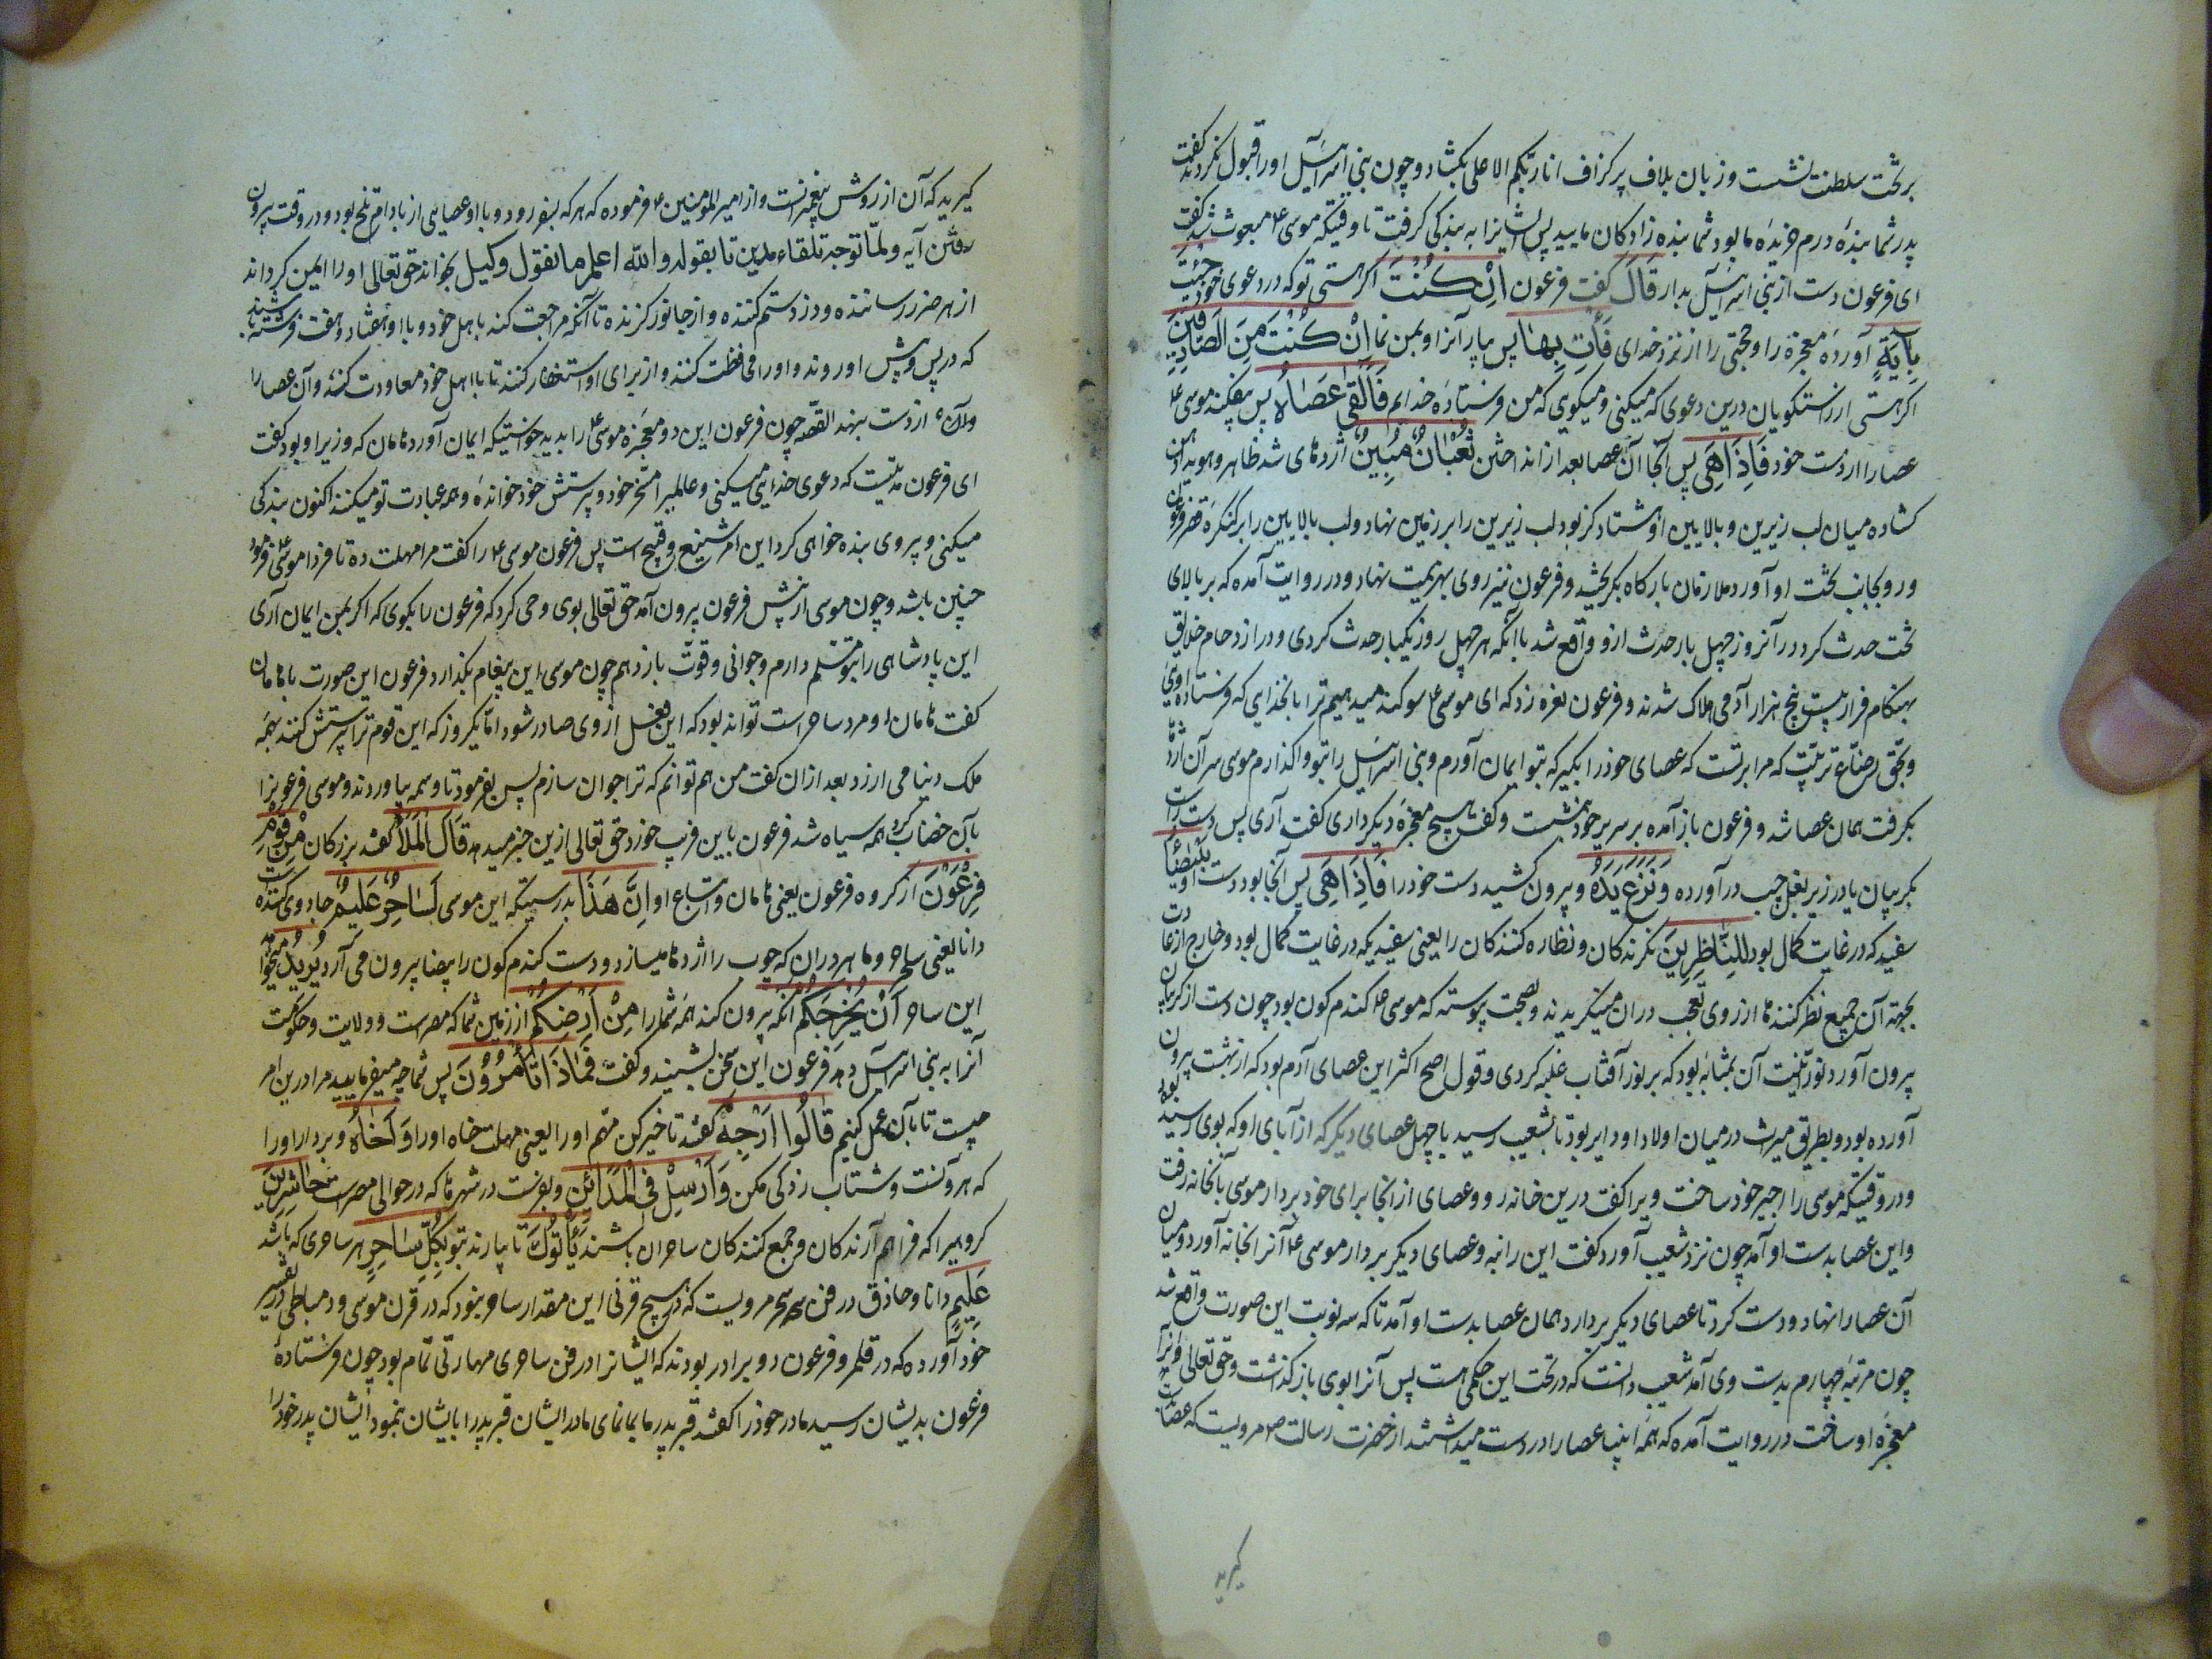 بر تخت سلطنت نشست و زبان بلاف پر کزاف انا ربکم الاعلی بکشاد و چون بنی اسرآئیل او را قبول نکردند کفت
پدر شما بندهٔ درم خریدهٔ ما بود شما بنده زادکان مایید پس ایشانرا به بندکی کرفت تا وقتیکه موسی ع مبعوث شد کفت
ای فرعون دست از بنی اسرآئیل بدار قَالَ کفت فرعون اِنْ كُنْتَ اکر هستی تو که در دعوی خود جِئْتَ
بِاٰيَةٍ آوردهٔ معجزه را و حجتی را از نزد خدای فَأْتِ بِهَا پس بیار آنرا و بمن نما اِنْ كُنْتَ مِنَ الصَّادِقِينَ
اکر هستی از راستکویان درین دعوی که میکنی و میکویی که من فرستادهٔ خدایم فَاَلْقٰى عَصَاهُ پس بیفکند موسی ع
عصا را از دست خود فَاِذَا هِیَ پس آنجا آن عصا بعد از انداختن ثُعْبَانٌ مُبِينٌ اژدهای شد ظاهر و هویدا دهن
کشاده میان لب زیرین و بالایین او هشتاد کز بود لب زیرین را بر زمین نهاد و لب بالایین را بر کنکرهٔ قصر فرعون
و رو بجانب تخت او آورد ملازمان بارکاه بکریختند و فرعون نیز روی بهزیمت نهاد و در روایت آمده که بر بالای
تخت حدث کرد و در آنروز چهل بار حدث ازو واقع شد با آنکه هر چهل روز یکبار حدث کردی و در ازدحام خلایق
بهنکام فرار بیست پنج هزار آدمی هلاک شدند و فرعون نعره زد که ای موسی ع سوکند میدهیم ترا بانخدایی که فرستاده اویی
و بحق رضاع تربیت که مرا برتست که عصای خود را بکیر که بتو ایمان آورم و بنی اسرآئیل را بتو واکذارم موسی سر آن اژدها
بکرفت همان عصا شد و فرعون باز آمده بر سریر خود بنشست و کفت هیچ معجزهٔ دیکر داری کفت آری پس دست راست
بکریبان یا در زیر بغل جیب در آورده وَنَزَعَ يَدَهُ و بیرون کشید دست خود را فَاِذَا هِیَ پس آنجا بود دست او بَيْضَاءُ
سفید که در غایت کمال بود لِلنَّاظِرِينَ نکرندکان و نظاره کنندکان را یعنی سفیدیکه در غایت کمال بود و خارج از عادت
بجهة آن جمیع نظر کنند ها از روی تعجب در ان مینکریدند و بصحت پیوسته که موسی ع کندم کون بود چون دست از کریبان
بیرون آورد نورانیت آن بمثابهٔ بود که بر نور آفتاب غلبه کردی و قول اصح اکثر این عصای آدم بود که از بهشت بیرون
آورده بود و بطریق میراث در میان اولاد او دایر بود تا بشعیب رسید با چهل عصای دیکر که از آبای او که بوی رسیده بود
و در وقتیکه موسی را اجیر خود ساخت ویرا کفت درین خانه رو و عصای از انجا برای خود بردار موسی بآنخانه رفت
و این عصا بدست او آمد چون نزد شعیب آورد کفت این را بنه و عصای دیکر بردار موسی ع آنرا بخانه آورد و میان
آن عصا را نهاد و دست کرد تا عصای دیکر بردارد همان عصا بدست او آمد تا که سه نوبت این صورت واقع شد
چون مرتبهٔ چهارم بدست وی آمد شعیب دانست که در تحت این حکمی هست پس آنرا بوی باز کذاشت و حق تعالی آنرا
معجزهٔ او ساخت در روایت آمده که همهٔ انبیا عصا را در دست میداشتند از حضرت رسالت ص مرویست که عصا
کیرید
کیرید که آن از روش پیغمبرانست و از امیر المؤمنین ع فرموده که هر که بسفر رود و با او عصایی از بادام تلخ بود و در وقت بیرون
رفتن آیه و لمّا توجه تلقاء مدین تا بقوله و الله اعلم ما نقول وکیل بخواند حق تعالی او را ایمن کرداند
از هر ضرر رسانندهٔ و دزد ستم کننده و از جانور کزنده تا آنکه مراجعت کند باهل خود و با او هفتاد و هفت فرشته باشند
که در پس و پیش او روند و او را محافظت کنند و از برای او استغفار کنند تا با اهل خود معاودت کند و آن عصا را
از دست بنهد القصه چون فرعون این دو معجزهٔ موسی ع را بدید خواستیکه ایمان آورد هامان که وزیر او بود کفت
ای فرعون مدتیست که دعوی خدایی میکنی و عالمیرا مسخر خود و پرستش خود خواندهٔ و همه عبادت تو میکنند اکنون بندکی
میکنی و پیروی بنده خواهی کرد این امر شنیع و قبیح است پس فرعون موسی ع را کفت مرا مهلت ده تا فردا موسی ع فرمود
چنین باشد و چون موسی از پیش فرعون بیرون آمد حق تعالی بوی وحی کرد که فرعون را بکوی که اکر بمن ایمان آری
این پادشاهی را بتو مسلم دارم و جوانی و قوت باز دهم چون موسی این پیغام بکذارد فرعون این صورت با هامان
کفت هامان او مرد ساحر است تواند بود که این فعل از وی صادر شود اما یکروز که این قوم ترا پرستش کنند بهمهٔ
ملک دنیا می ارزد بعد از ان کفت من هم توانم که ترا جوان سازم پس بفرمود تا وسمه بیاوردند و موسی فرعونرا
بآن خضاب کرد همه سیاه شد فرعون باین فریب خورد حق تعالی ازین خبر میدهد قَالَ الْمَلَأُ کفتند بزرکان مِنْ قَوْمِ
فِرْعَوْنَ از کروه فرعون یعنی هامان و اتباع او اِنَّ هٰذَا بدرستیکه این موسی لَسَاحِرٌ عَلِيمٌ جادوی کننده است
دانا یعنی ساحر و ماهر در ان که چوب را اژدها میسازد و دست کندم کون را بیضا بیرون می آرد يُرِيدُ میخواهد
این ساحر اَنْ يُخْرِجَكُمْ آنکه بیرون کند همهٔ شما را مِنْ اَرْضِكُمْ از زمین شما که مصر است و ولایت و حکومت
آنرا به بنی اسرآئیل دهد فرعون این سخن بشنید و کفت فَمَاذَا تَأْمُرُوْنَ پس شما چه میفرمایید مرا درین امر
چیست تا بآن عمل کنیم قَالُوا اَرْجِهْ کفتند تاخیر کن مهم او را یعنی مهلت خواه او را وَاَخَاهُ و بردار او را
که هرونست و شتاب زدکی مکن وَاَرْسِلْ فِی الْمَدَائِنِ و بفرست در شهرها که در حوالی مصر است حَاشِرِينَ
کروهیرا که فراهم آرندکان و جمع کنندکان ساحران باشند يَأْتُوكَ تا بیارند بتو بِكُلِّ سَاحِرٍ هر ساحری که باشد
عَلِيمٍ دانا و حاذق در فن سحر مرویست که در هیچ قرنی این مقدار ساحر نبود که در قرن موسی و دمیاطی در تفسیر
خود آورده که در قلمرو فرعون دو برادر بودند که ایشانرا در فن ساحری مهارتی تمام بود چون فرستادهٔ
فرعون بدیشان رسید مادر خود را کفتند قبر پدر ما بما نمای مادر ایشان قبر پدر را بایشان بنمود ایشان پدر خود را